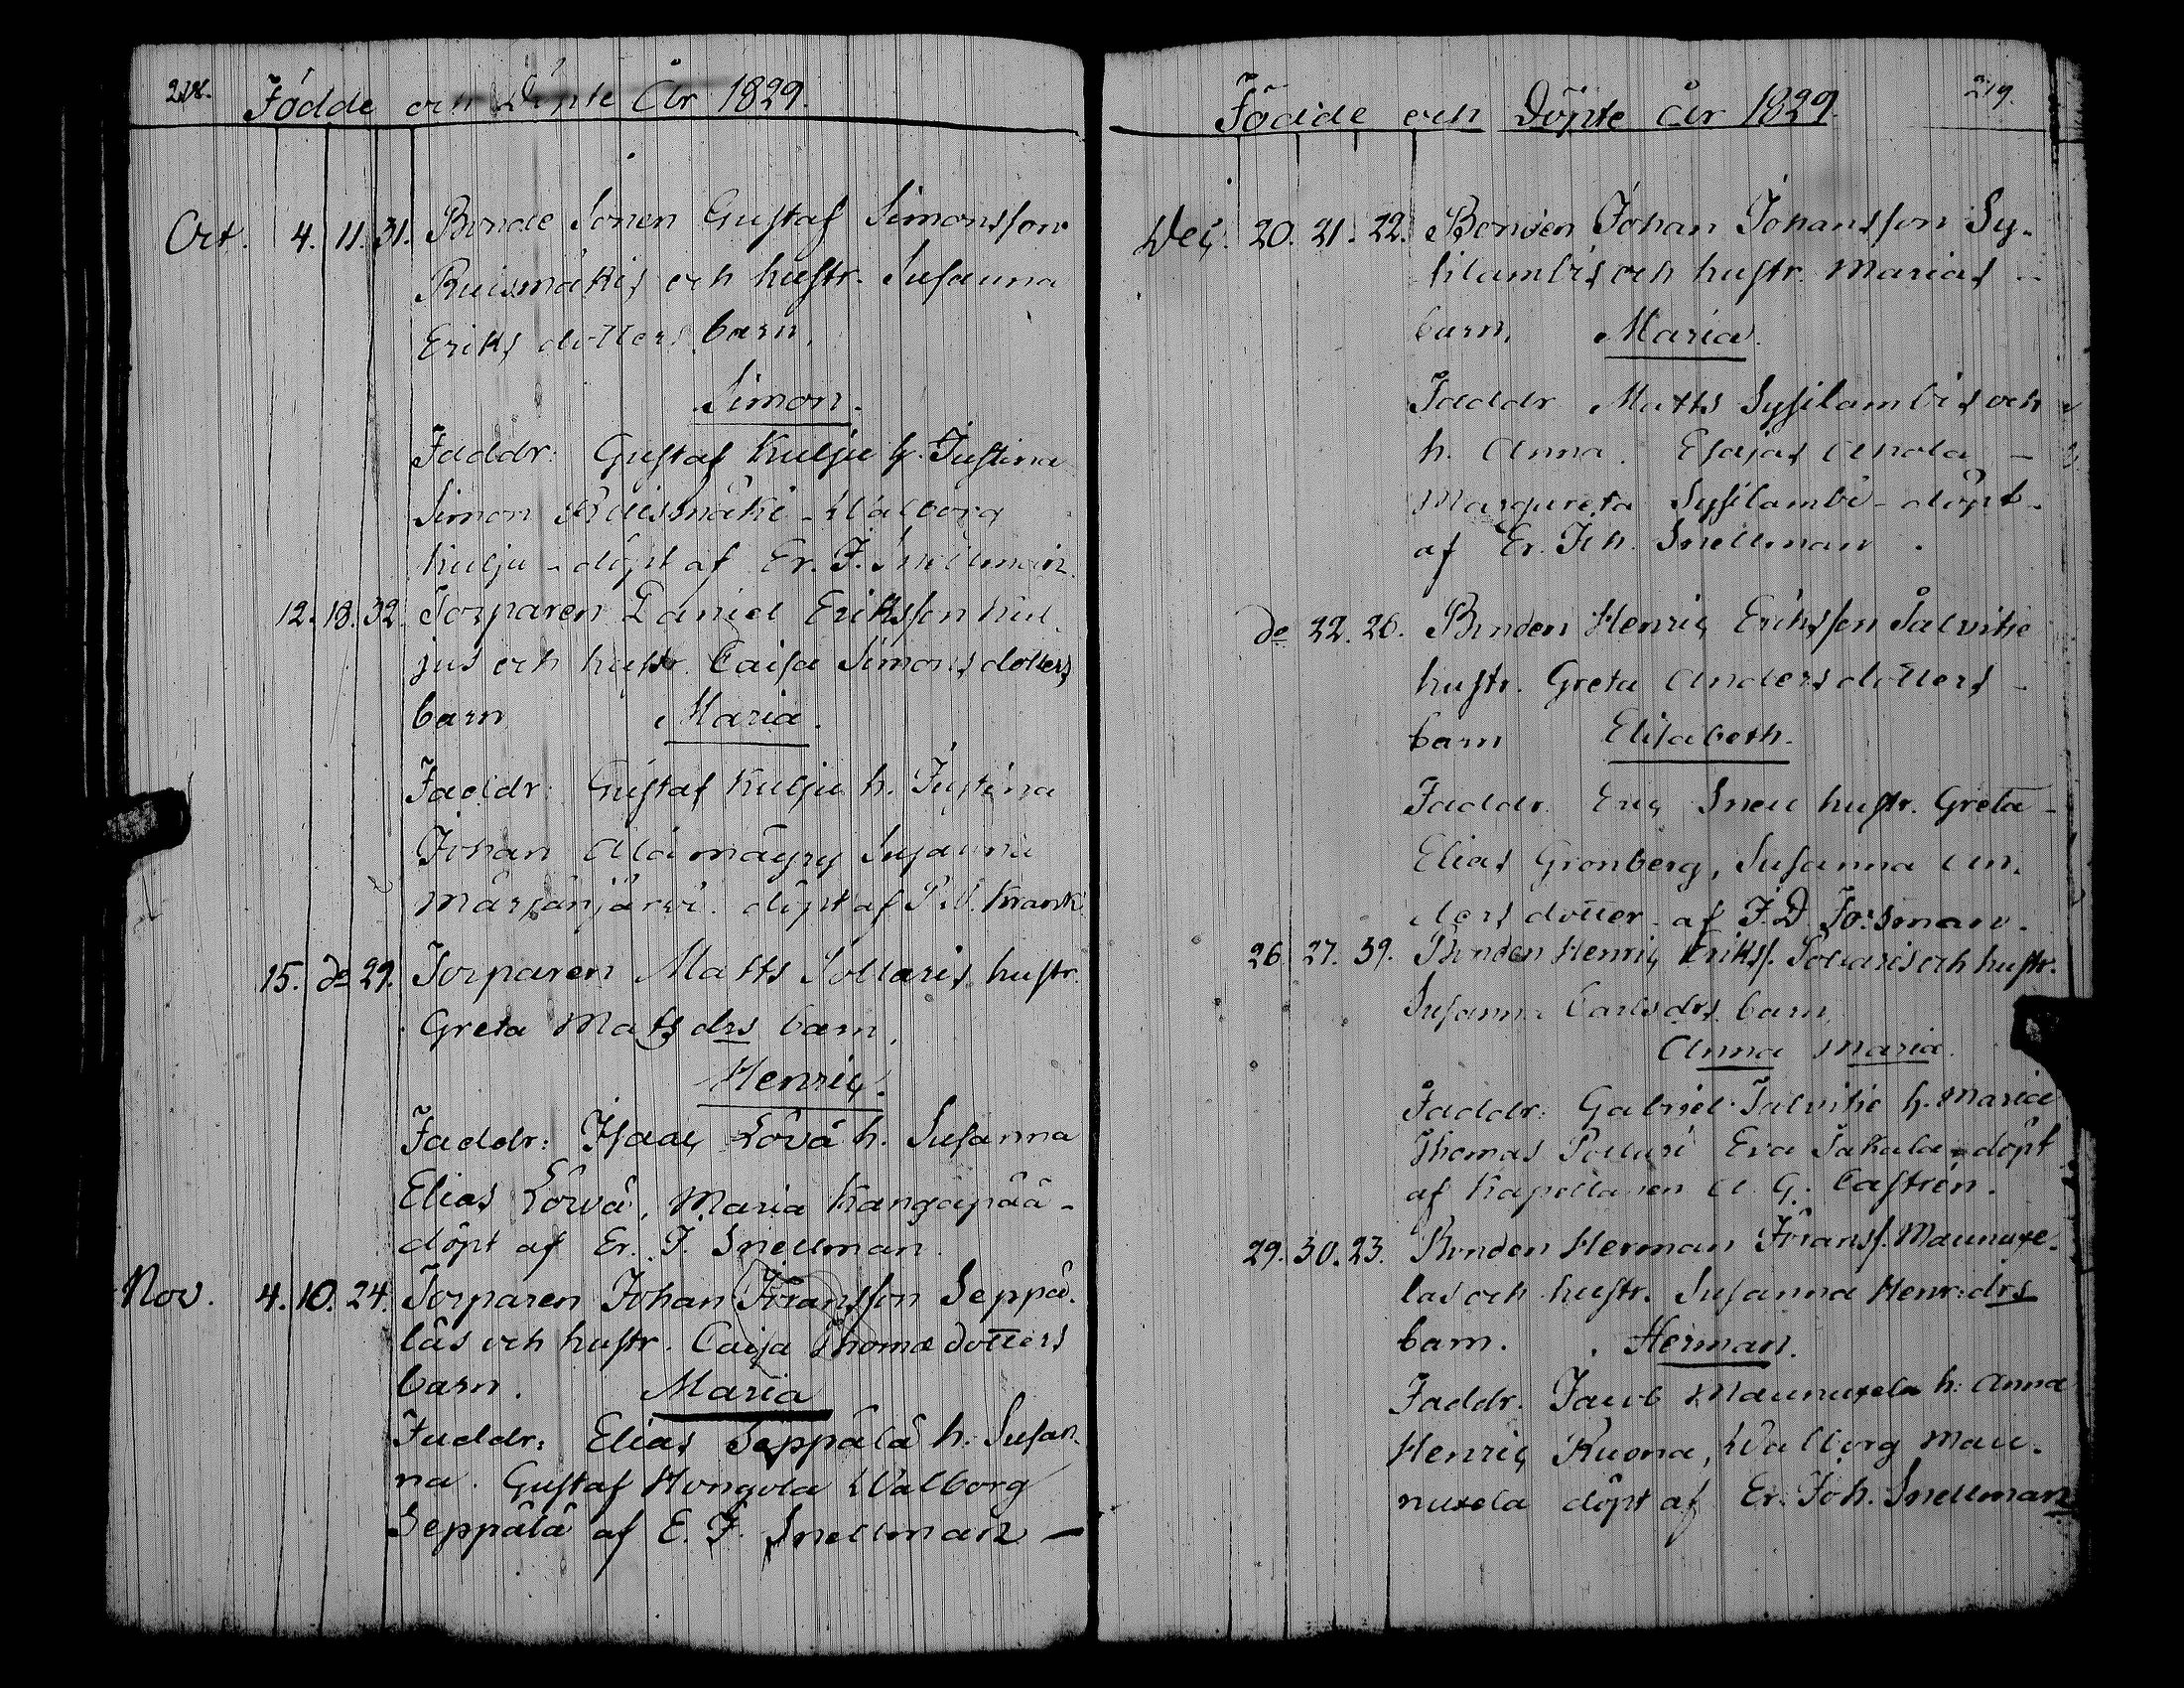 218.
Födde och Döpte År 1829.
Oct. 4. 11. 31. Bonde Sonen Gustaf Simonsson
Ruismäkis och hustr. Susanna
Eriks dotters barn,
Simon.
Faddr: Gustaf Kulju h. Justina
Simon Ruismäki - Walborg
Kulju - döpt af Er. J. Snellman.
12. 18. 32. Torparen Daniel Eriksson Kul
jus och hustr. Caisa Simons dotters
barn Maria.
Faddr: Gustaf Kulju h. Justina
Johan Alamäyry Susanna
Märjänjärvi. döpt af P. U. Krank
15. do 29. Torparen Matts Sollaris hustr.
Greta Mats drs barn,
Henric.
Faddr: Isaac Lövä h. Susanna
Elias Lövä, Maria Kangaspää -
döpt af Er. J. Snellman
Nov. 4. 10. 24. Torparen Johan Fransson Seppä.
läs och hustr. Caisa Thomæ dotters
barn. Maria
Faddr: Elias Seppälä h. Susan
na. Gustaf Hongola Walborg
Seppälä af E. J. Snellman —
219.
Födde och Döpte År 1829.
Dec. 20. 21. 22. Bonden Johan Johansson Sy-
silambis och hustr. Marias -
barn, Maria.
Faddr Matts Sysilambis och
h. Anna. Esajas Anola -
Margareta Sysilambi - döpt -
af Er. Joh. Snellman.
do 22. 26. Bonden Henric Eriksson Salvike
hustr. Greta Anders dotters -
barn Elisabeth.
Faddr. Eric Snell hustr. Greta -
Elias Gronberg, Susanna An.
ders dotter - af J. D. Forsman.
26. 27. 39. Bonden Henric Erikss. och hustr.
Susanna Carlsdrs. barn,
Anna Maria.
Faddr: Gabriel Salvike h. Maria
Thomas Eva - döpt
af Kapellanen A. G. Castrén.
29. 30. 23. Bonden Herman Franss. Maunuxe-
las och hustr. Susanna Henr: drs
barn. Herman.
Faddr. Jacob Maunuxela h: Anna
Henric Kuona, Walborg Mau-
nuxela döpt af Er. Joh. Snellman